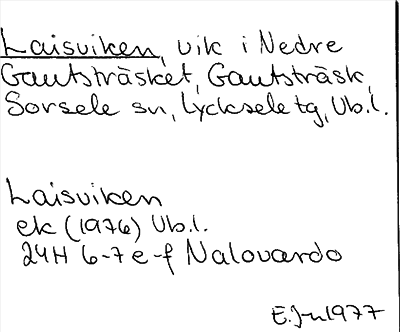 Laisviken, vik i Nedre
Gautsträsket, Gautsträsk,
Sorsele sn, Lycksele tg, Vb.l.
Laisviken
ek (1976) Vb.l.
24H 6-7 e-f Nalovardo
E.Jn 1977